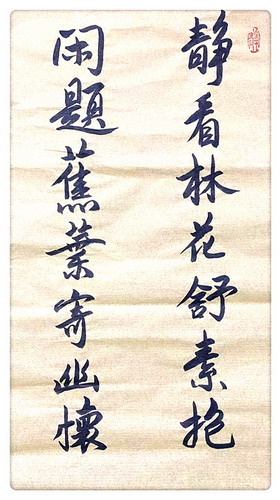 静看林花舒素抱
闲題蕉葉寄幽懷